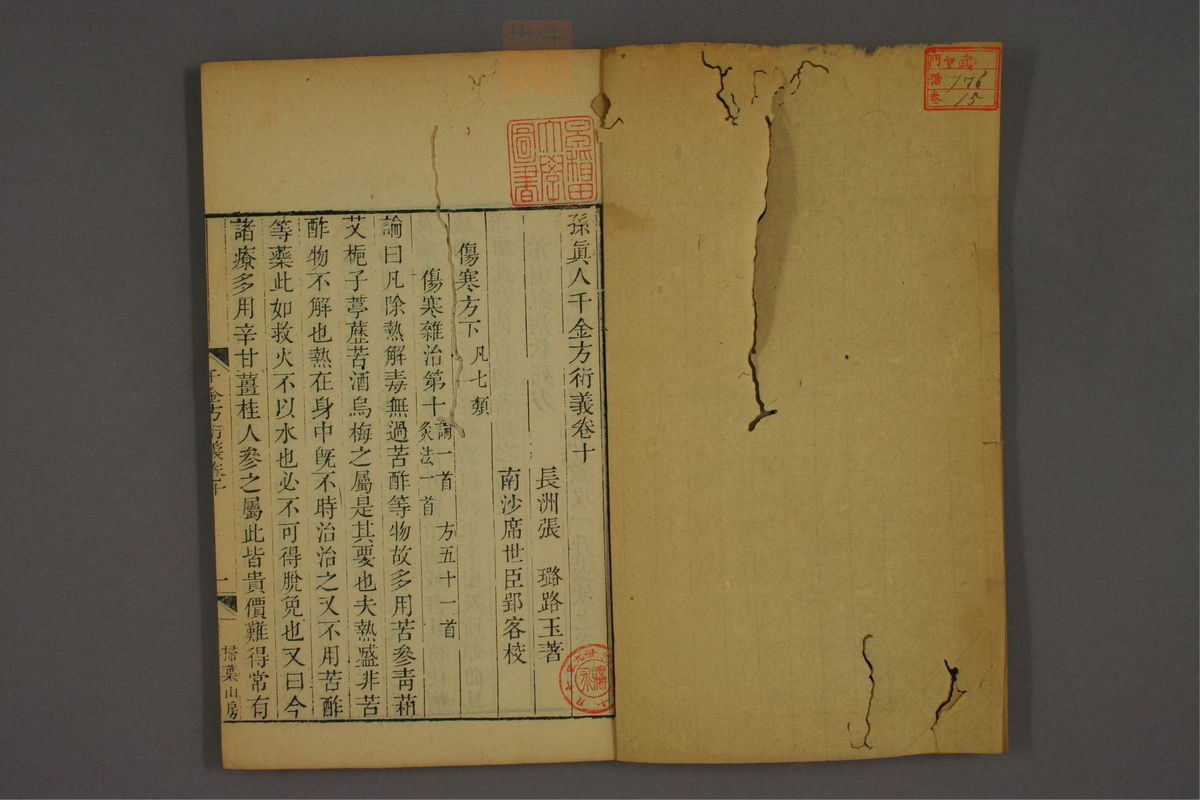 孫眞人千金方衍義卷十
長洲張 璐路玉著
南沙席世臣郢客校
傷寒方下 凡七類
傷寒雜治第十 論一首 方五十一首 灸法一首
論曰凡除熱解毒無過苦酢等物故多用苦參青葙
艾梔子葶藶苦酒烏梅之屬是其要也夫熱盛非苦
酢物不解也熱在身中旣不時治治之又不用苦酢
等藥此如救火不以水也必不可得脫免也又曰今
諸療多用辛甘薑桂人參之屬此皆貴價難得常有
千金方衍義卷十
一
掃葉山房
早稻田
大學
圖書
176
15